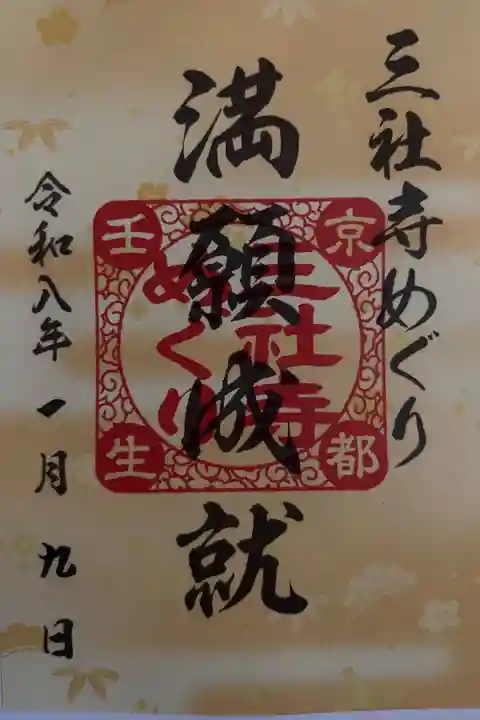 三社寺めぐり
満願成就
令和八年一月九日
京都
壬生
三社寺
めぐり